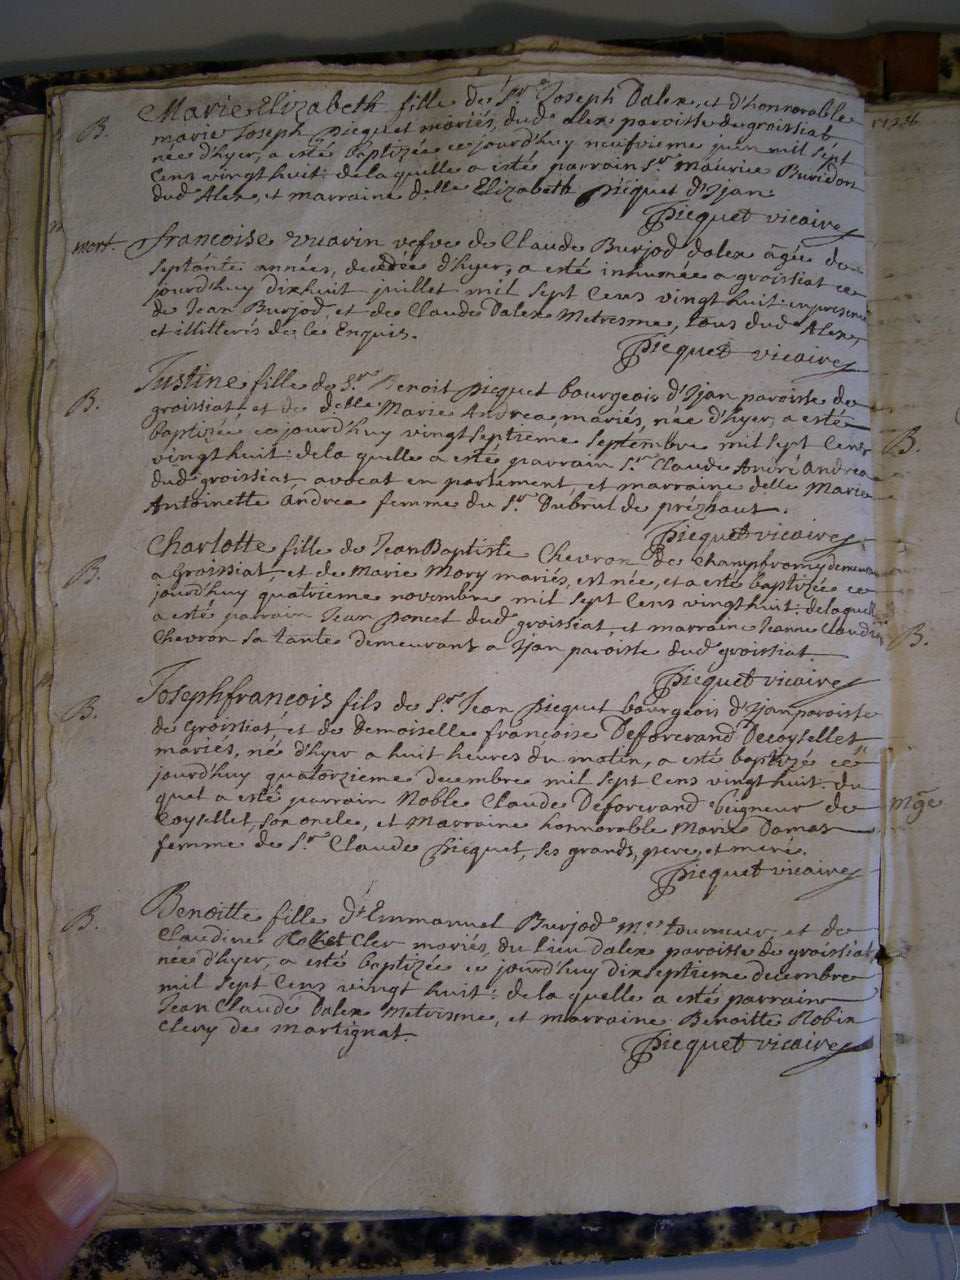 B. Marie Elizabeth fille de Sr. Joseph Dalex, et d'honnorable
marie Joseph Picquet mariés, dud. alex paroisse de groissiat
née d'hyer, a esté baptizée ce jourd'huy neufvieme juin mil sept
Cens vingt huit: de la quelle a esté parrain Sr. Maurice Buridon
dud. Alex, et marraine d.elle Elizabeth Picquet d'Ijan
Picquet vicaire
mort francoise vuarin vefve de Claude Burjod dalex âgée de
septánte années, decedée d'hyer, a esté inhumée a groissiat ce
jourd'huy dixhuit juillet mil sept Cens vingt huit: en presence
de Jean Burjod, et de Claude Dalex Metresme, tous dud. Alex,
et illitteris de ce Enquis.
Picquet vicaire
B. Justine fille de Sr. Benoit Picquet bourgeois d'Ijan paroisse de
groissiat, et de delle Marie Andrea, mariés, née d'hyer, a esté
baptizée ce jourd'huy vingt septieme septembre mil sept Cens
vingt huit: de la quelle a esté parrain Sr. Claude André Andrea
dud. groissiat, avocat en parlement, et marraine delle Marie
Antoinette Andrea femme du Sr. Dubrul de prézhaut.
Picquet vicaire
B. Charlotte fille de Jean Baptiste Chevron de Champfromy demeurant
a Groissiat, et de Marie Mory mariés, est née, et a esté baptizée ce
jourd'huy quatrieme novembre mil sept Cens vingt huit: de laquelle
a esté parrain Jean poncet dud. groissiat, et marraine Jeanne Claudine
Chevron sa tante demeurans a Ijan paroisse dud. groissiat.
Picquet vicaire
B. Joseph francois fils de Sr. Jean Picquet bourgeois d'Ijan paroisse
de Groissiat, et de Demoiselle francoise Deforcrand Decoysellet
mariés, né d'hyer a huit heures du matin, a esté baptizé ce
jourd'huy quatorzieme decembre mil sept Cens vingt huit: du
quel a esté parrain Noble Claude Deforcrand Seigneur de
Coysellet, son oncle, et Marraine honnorable Marie Damas
femme de Sr. Claude Picquet, ses grands, pere, et mere.
Picquet vicaire
B. Benoitte fille d'Emmanuel Burjod me. tourneur, et de
Claudine Cler mariés, du lieu dalex paroisse de groissiat
née d'hyer, a esté baptizée ce jourd'huy dix septieme decembre
mil sept Cens vingt huit: de la quelle a esté parrain
Jean Claude Dalex Metresme, et marraine Benoitte Robin
Clery de martignat.
Picquet vicaire
B.
B.
Mge